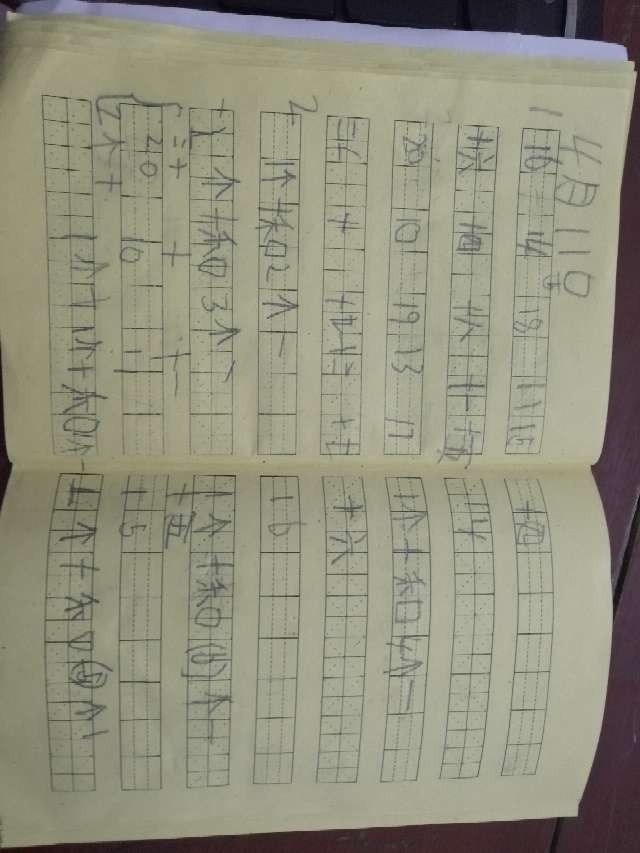 4月11日
1 16 14 18 11 15
十六 十四 十八 十一 十五
20 10 19 13 17
二十 十 十九 十三 十七
2 1个十和2个一
1个十和3个一
二十 十 十一
20 10 11
2个十 1个十 1个十和1个一
十四
14
1个十和4个一
十六
16
1个十和(6)个一
十五
15
1个十和(5)个1